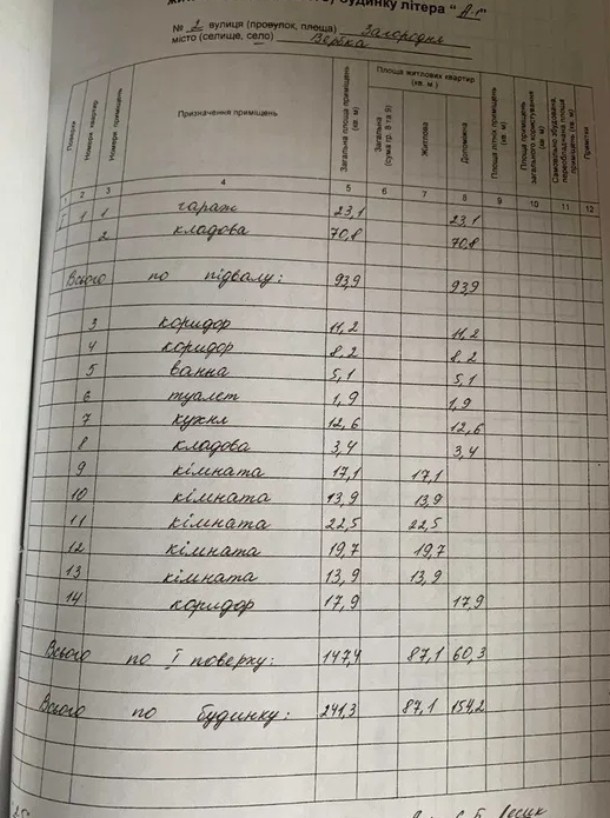 будинку літера " А-1"
№ 2 вулиця (провулок, площа) Загородня
місто (селище, село) Вербка
Поверхи Номери квартир Номери приміщень Призначення приміщень Загальна площа приміщень (кв. м) Площа житлових квартир (кв. м.) Загальна (сума гр. 8 та 9) Житлова Допоміжна Площа літніх приміщень (кв. м) Площа приміщень загального користування (кв. м) Самовільно збудована, переобладнана площа приміщень (кв. м) Примітки
1 2 3 4 5 6 7 8 9 10 11 12
1 1 гараж 23,1 23,1
2 кладова 70,8 70,8
Всього по підвалу: 93,9 93,9
3 коридор 11,2 11,2
4 коридор 8,2 8,2
5 ванна 5,1 5,1
6 туалет 1,9 1,9
7 кухня 12,6 12,6
8 кладова 3,4 3,4
9 кімната 17,1 17,1
10 кімната 13,9 13,9
11 кімната 22,5 22,5
12 кімната 19,7 19,7
13 кімната 13,9 13,9
14 коридор 17,9 17,9
Всього по I поверху: 147,4 87,1 60,3
Всього по будинку: 241,3 87,1 154,2